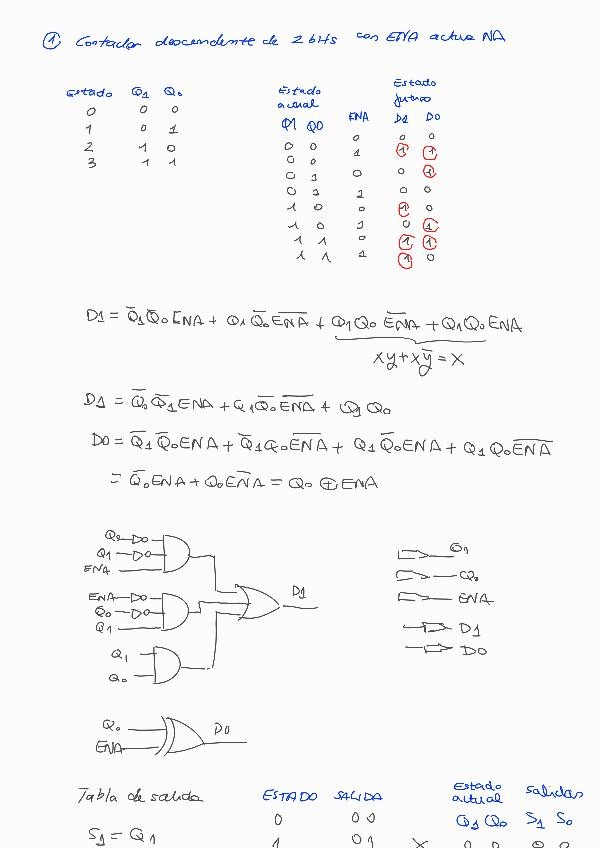 ① Contador descendente de 2 bits con ENA activa NA
Estado Q1 Q0
0 0 0
1 0 1
2 1 0
3 1 1
Estado actual Estado futuro
Q1 Q0 ENA D1 D0
0 0 0 0 0
0 0 1 1 1
0 1 0 0 1
0 1 1 0 0
1 0 0 1 0
1 0 1 0 1
1 1 0 1 1
1 1 1 1 0
D1 = Q̅1Q̅0 ENA + Q1 Q̅0 E̅N̅A̅ + Q1Q0 E̅N̅A̅ + Q1Q0 ENA
xy + xy̅ = x
D1 = Q̅0Q̅1 ENA + Q1Q̅0 E̅N̅A̅ + Q1 Q0
D0 = Q̅1Q̅0 ENA + Q̅1Q0 E̅N̅A̅ + Q1Q̅0 ENA + Q1Q0 E̅N̅A̅
= Q̅0 ENA + Q0 E̅N̅A̅ = Q0 ⊕ ENA
Q0
Q1
ENA
ENA
Q0
Q1
Q1
Q0
D1
Q1
Q0
ENA
D1
D0
Q0
ENA
D0
Tabla de salida
S1 = Q1
ESTADO SALIDA
0 00
1 01
Estado actual salidas
Q1 Q0 S1 S0